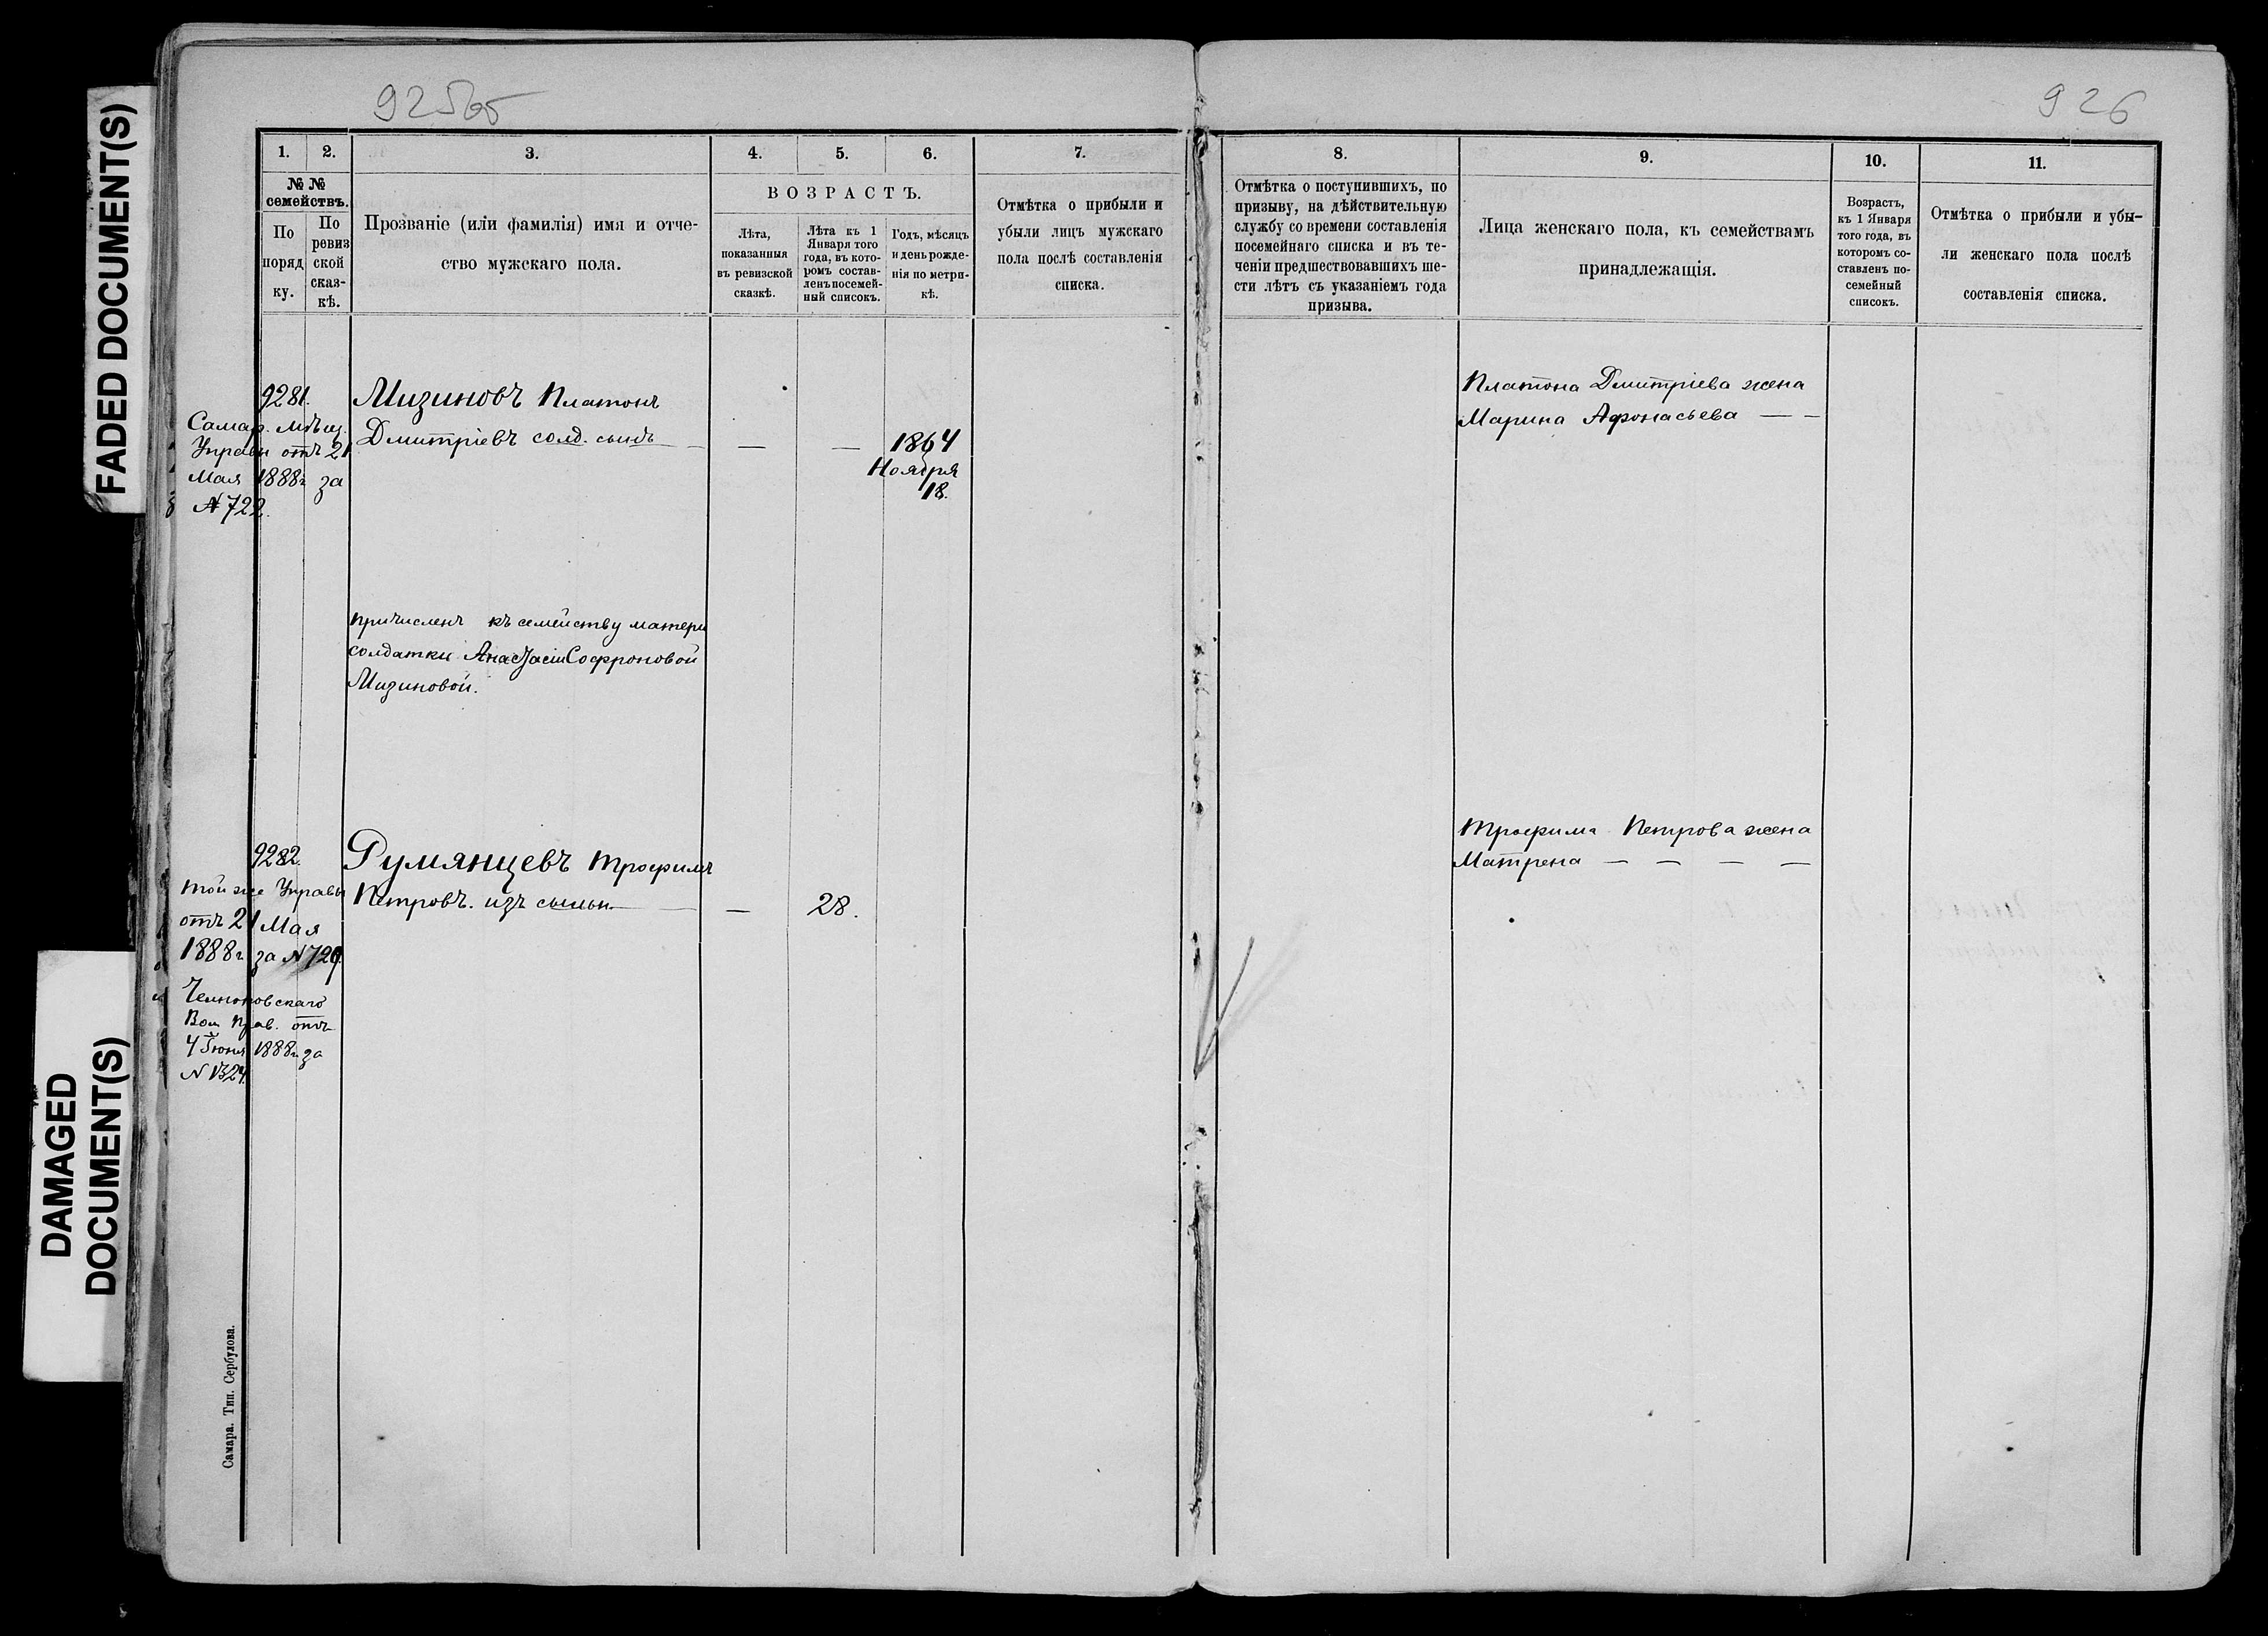 FADED DOCUMENT(S)
DAMAGED
DOCUMENT(S)
925об
926
1.
2.
3.
4.
5.
6.
7.
№ №
семействъ.
По
поряд
ку.
По
ревиз
ской
сказ-
кѣ.
Прозваніе (или фамилія) имя и отче-
ство мужскаго пола.
ВОЗРАСТЪ.
Лѣта,
показанныя
въ ревизской
сказкѣ.
Лѣта къ 1
Января того
года, въ кото-
ромъ состав-
ленъ посемей-
ный списокъ.
Годъ, мѣсяцъ
и день рожде-
нія по метри-
кѣ.
Отмѣтка о прибыли и
убыли лицъ мужскаго
пола послѣ составленія
списка.
9281.
Самар. Мѣщ.
Управы отъ 21
Мая 1888г за
№ 722.
Мизиновъ Платонъ
Дмитріевъ солд. сынъ — — —
1864
Ноября
18.
причисленъ къ семейству матери
солдатки Анастасіи Софроновой
Мизиновой.
9282.
той же Управы
отъ 21 Мая
1888г за №
Вол. Прав. отъ
4 Іюня 1888г за
№ 1324.
Румянцевъ Трофимъ
Петровъ. изъ — — 28.
Самара. Тип. Сербулова.
8.
9.
10.
11.
Отмѣтка о поступившихъ, по
призыву, на дѣйствительную
службу со времени составленія
посемейнаго списка и въ те-
ченіи предшествовавшихъ ше-
сти лѣтъ съ указаніемъ года
призыва.
Лица женскаго пола, къ семействамъ
принадлежащія.
Возрастъ,
къ 1 Января
того года, въ
которомъ со-
ставленъ по-
семейный
списокъ.
Отмѣтка о прибыли и убы-
ли женскаго пола послѣ
составленія списка.
Платона Дмитріева жена
Марина Афонасьева — —
Трофима Петрова жена
Матрена — — — —